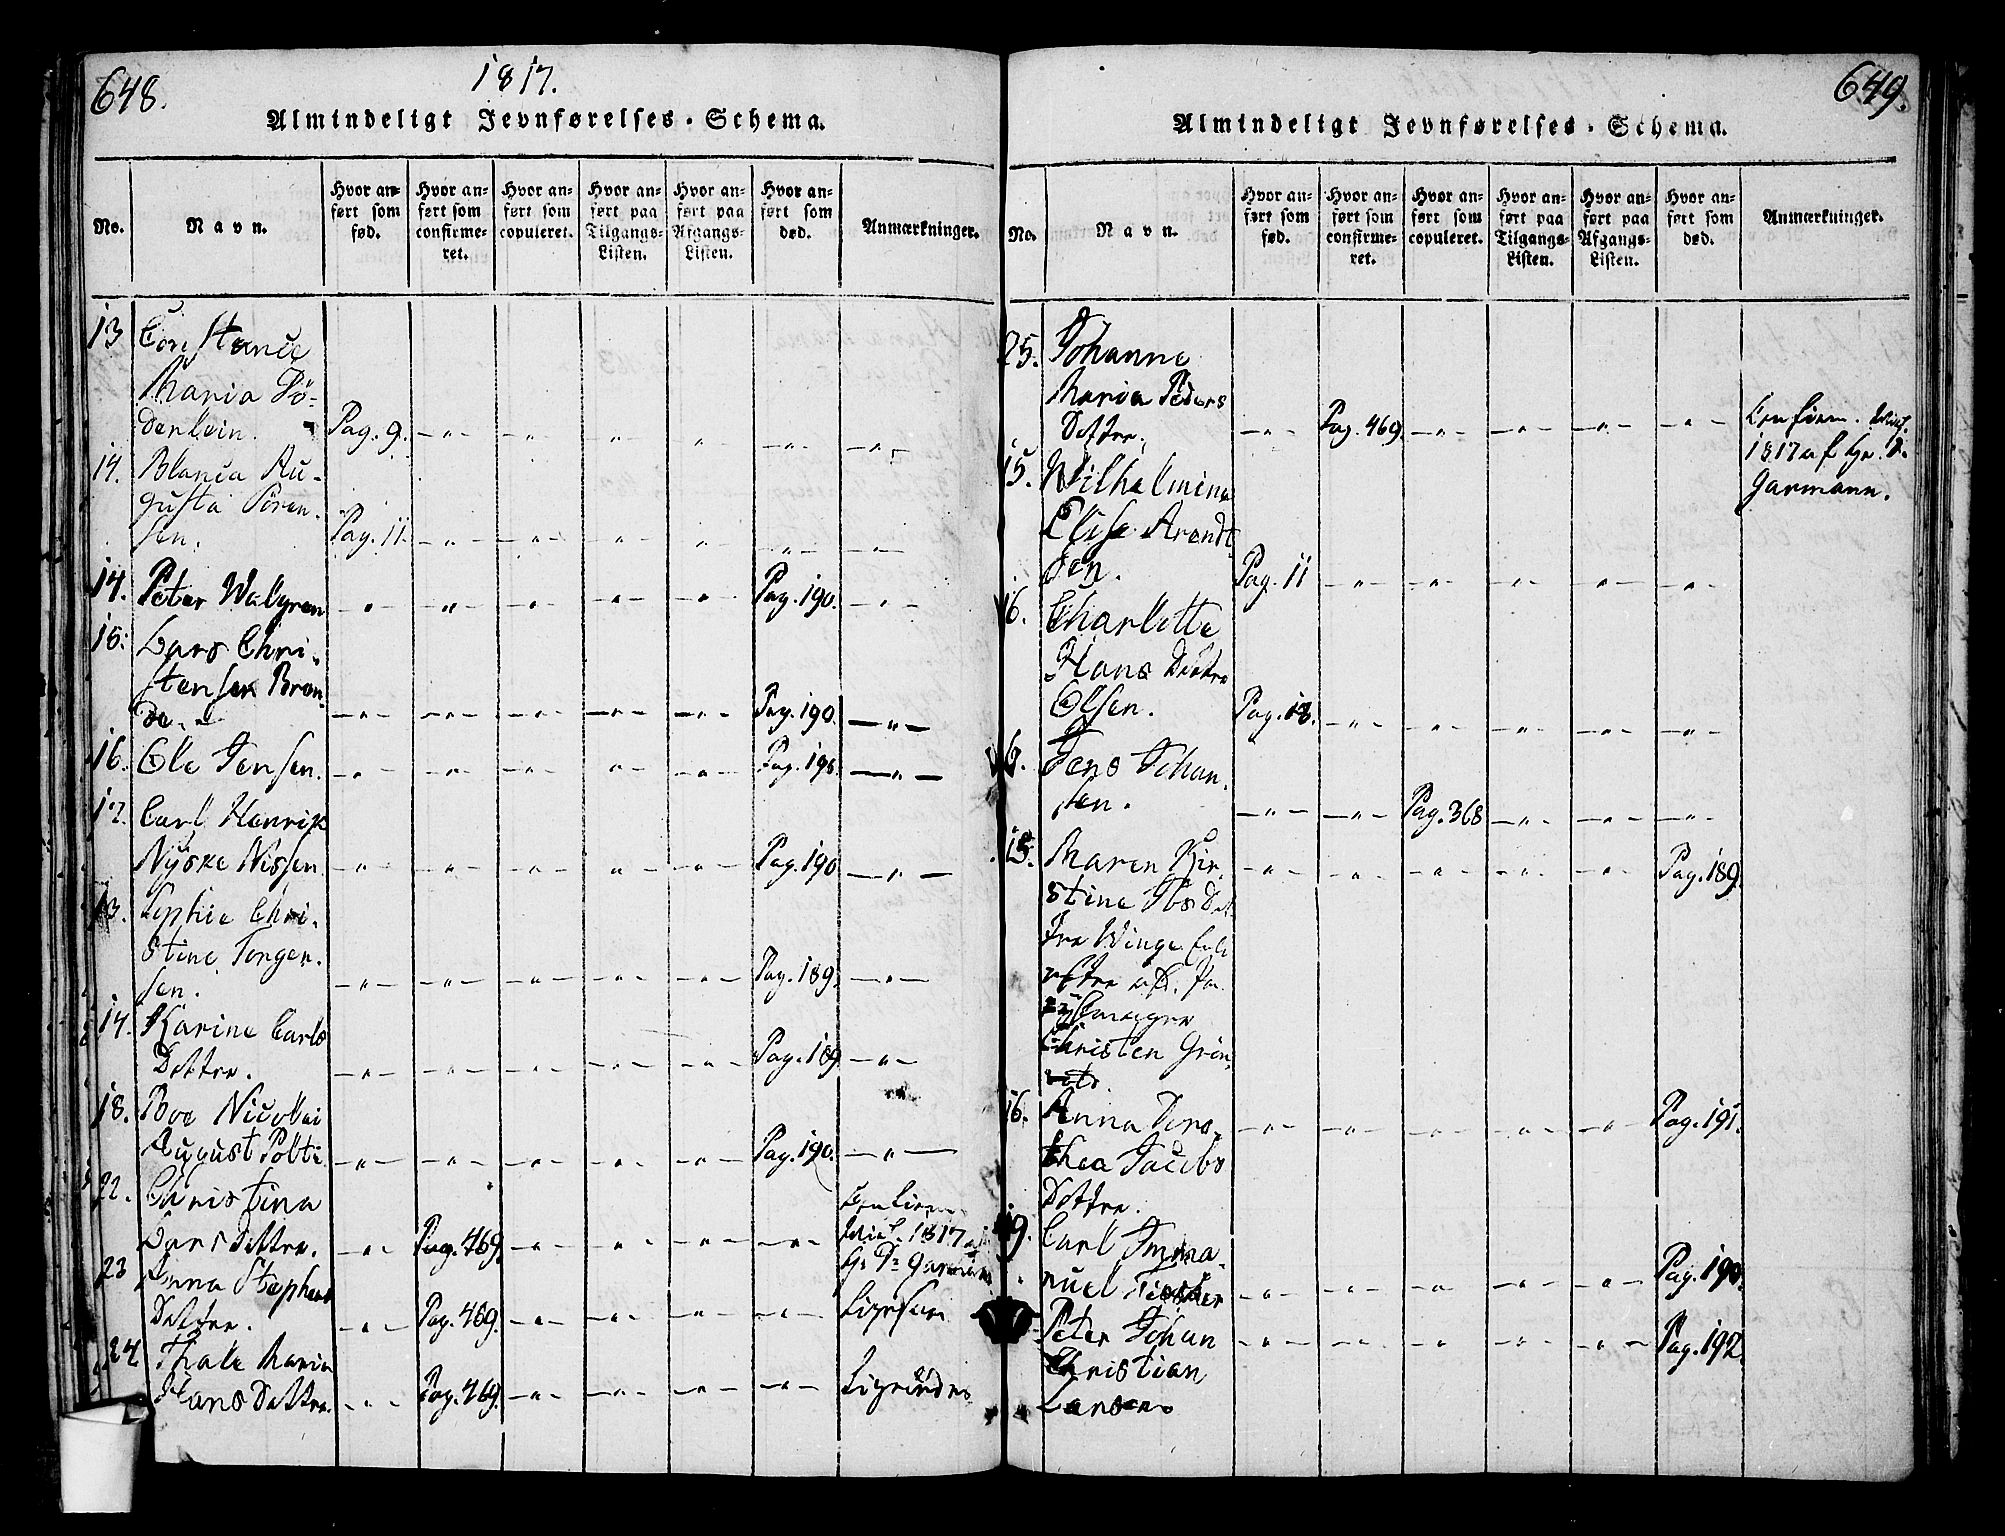 648.
1817.
Almindeligt Jevnførelses-Schema.
No.
Navn.
Hvor anført som fød.
Hvor anført som confirmeret.
Hvor anført som copuleret.
Hvor anført paa Tilgangs-Listen.
Hvor anført paa Afgangs-Listen.
Hvor anført som død.
Anmærkninger.
13 Constance
Maria Dö-
derlein. Pag. 9. -"- -"- -"- -"- -"- -"-
14. Blanca Au-
gusta Sören-
sen. Pag. 11. -"- -"- -"- -"- -"- -"-
14. Peter Walgren -"- -"- -"- -"- -"- Pag. 190. -"-
15. Lars Chri-
stensen Bran-
de. -"- -"- -"- -"- -"- Pag. 190. -"-
16. Ole Jensen. -"- -"- -"- -"- -"- Pag. 190. -"-
17. Carl Henrik
Nyske Nissen -"- -"- -"- -"- -"- Pag. 190 -"-
13. Sophie Chri-
stine Jörgen-
sen. -"- -"- -"- -"- -"- Pag. 189. -"-
14. Karine Carls
Dattre. -"- -"- -"- -"- -"- Pag. 189 -"-
18. Boe Nicolai
August -"- -"- -"- -"- -"- Pag. 190. -"-
22. Christina
Lars Dattre. -"- Pag. 469. -"- -"- -"- -"- Confirm.
Mich. 1817 af
Hr. D. Garmann
23 Anna Stephens
Dattre. -"- Pag. 469. -"- -"- -"- -"- Ligesaa
24 Thale Maria
Hans Dattre. -"- Pag. 469. -"- -"- -"- -"-
649.
Almindeligt Jevnførelses-Schema.
No.
Navn.
Hvor anført som fød.
Hvor anført som confirmeret.
Hvor anført som copuleret.
Hvor anført paa Tilgangs-Listen.
Hvor anført paa Afgangs-Listen.
Hvor anført som død.
Anmærkninger.
25. Johanne
Maria Peders
Dattre. -"- Pag. 469. -"- -"- -"- -"- Confirm. Mich.
1817 af Hr. D.
Garmann.
15. Wilhelmine
Elise Arendt
sen. Pag. 11 -"- -"- -"- -"- -"-
16. Charlotte
Hans Dattre
Olsen. Pag. 18. -"- -"- -"- -"- -"-
6. Jens Johan-
sen. -"- -"- Pag. 368 -"- -"- -"-
15. Maren Kir- -"- -"- -"- -"- -"- Pag. 189.
stine Ibs Dat-
tre Winge
Christen Grön-
16. Anna Doro- -"- -"- -"- -"- -"- Pag. 191.
thea Jacobs
Dattre.
19. Carl Imma-
nuel Fischer -"- -"- -"- -"- -"- Pag. 190.
Peter Johan -"- -"- -"- -"- -"- Pag. 192.
Christian
Larsen